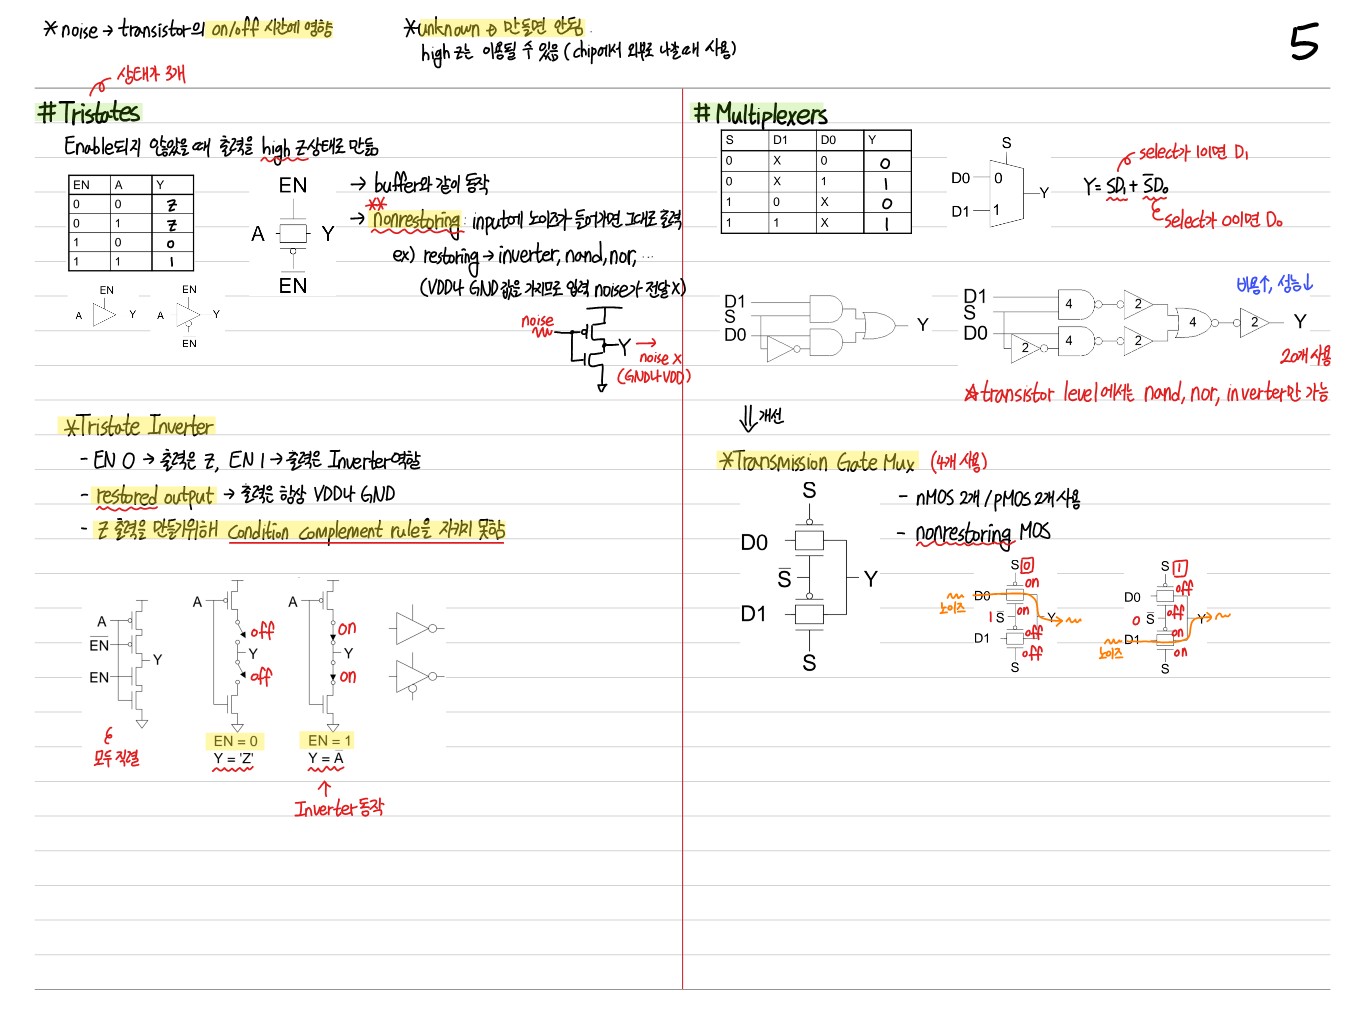 *noise → transistor의 on/off 시간에 영향
*unknown → 만들면 안됨
high Z는 이용될 수 있음 (chip에서 외부로 나갈때 사용)
5
상태가 3개
# Tristates
Enable되지 않았을때 출력을 high Z상태로 만듦
EN A Y
0 0 Z
0 1 Z
1 0 0
1 1 1
EN
A Y
EN
EN
A Y
EN
A Y
EN
→ buffer와 같이 동작
**
→ nonrestoring : input에 노이즈가 들어가면 그대로 출력
ex) restoring → inverter, nand, nor, ...
(VDD나 GND값을 가지므로 입력 noise가 전달 X)
noise
Y →
noise X
(GND나 VDD)
*Tristate Inverter
- EN 0 → 출력은 Z, EN 1 → 출력은 Inverter역할
- restored output → 출력은 항상 VDD나 GND
- Z 출력을 만들기위해 condition complement rule을 지키지 못함
A
EN
EN
Y
모두 직렬
A
off
Y
off
EN = 0
Y = 'Z'
A
on
Y
on
EN = 1
Y = A̅
Inverter 동작
# Multiplexers
S D1 D0 Y
0 X 0 0
0 X 1 1
1 0 X 0
1 1 X 1
S
D0 0
D1 1
Y
select가 1이면 D₁
Y = SD₁ + S̅D₀
select가 0이면 D₀
D1
S
D0
Y
비용↑, 성능↓
D1
S
D0
4 2
4 2
2
4 2
Y
20개 사용
☆transistor level에서는 nand, nor, inverter만 가능
⇓ 개선
*Transmission Gate Mux (4개 사용)
- nMOS 2개 / pMOS 2개 사용
- nonrestoring MOS
S
D0
S̅
D1
Y
S
S 0
on
D0
노이즈
on
1 S̅
Y
off
D1
off
S
S 1
off
D0
off
0 S̅
Y
on
D1
노이즈
on
S